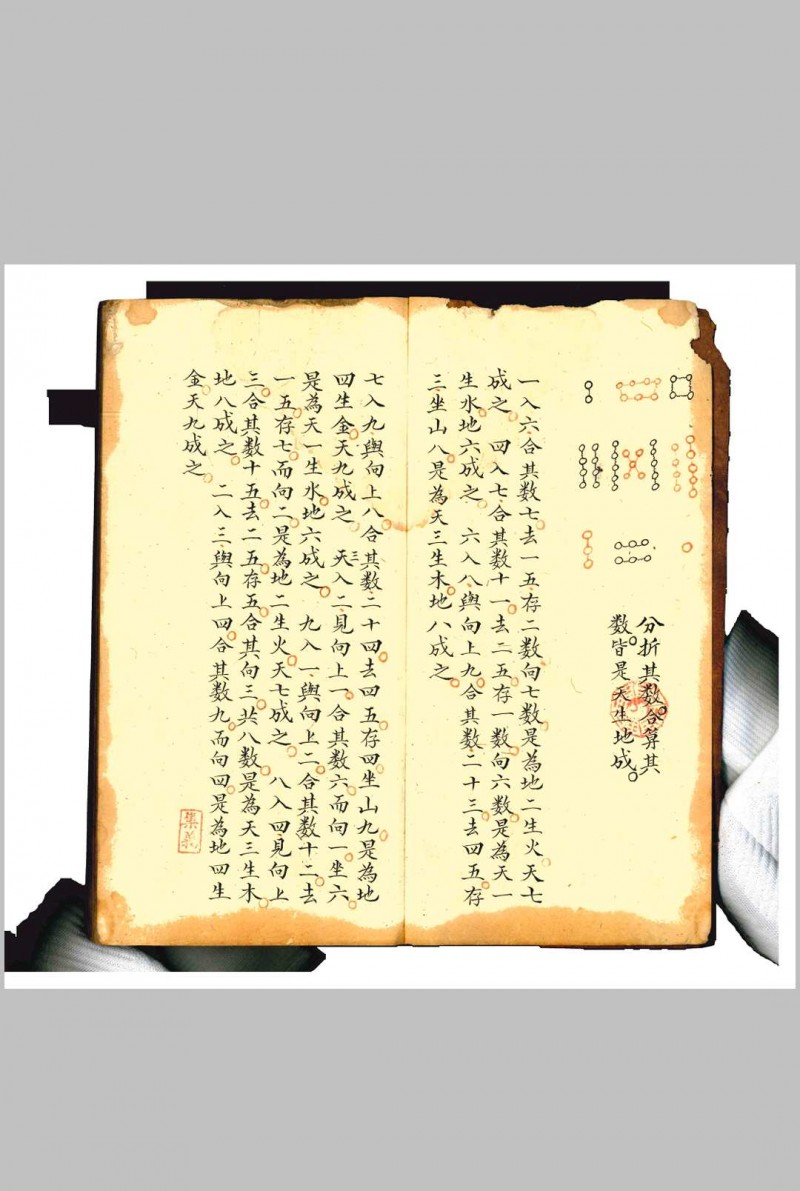 分折其数合算其
数皆是天生地成
一入六合其数七去一五存二数向七数是為地二生火天七
成之　四入七合其数十一去二五存一数向六数是為天一
生水地六成之　六入八與向上九合其数二十三去四五存
三坐山八是為天三生木地八成之
七入九與向上八合其数二十四去四五存四坐山九是為地
四生金天九成之　天三入二見向上一合其数六而向一坐六
是為天一生水地六成之　九入一與向上二合其数十二去
一五存七而向二是為地二生火天七成之　八入四見向上
三合其数十五去二五存五合其向三共八数是為天三生木
地八成之　二入三與向上四合其数九而向四是為地四生
金天九成之